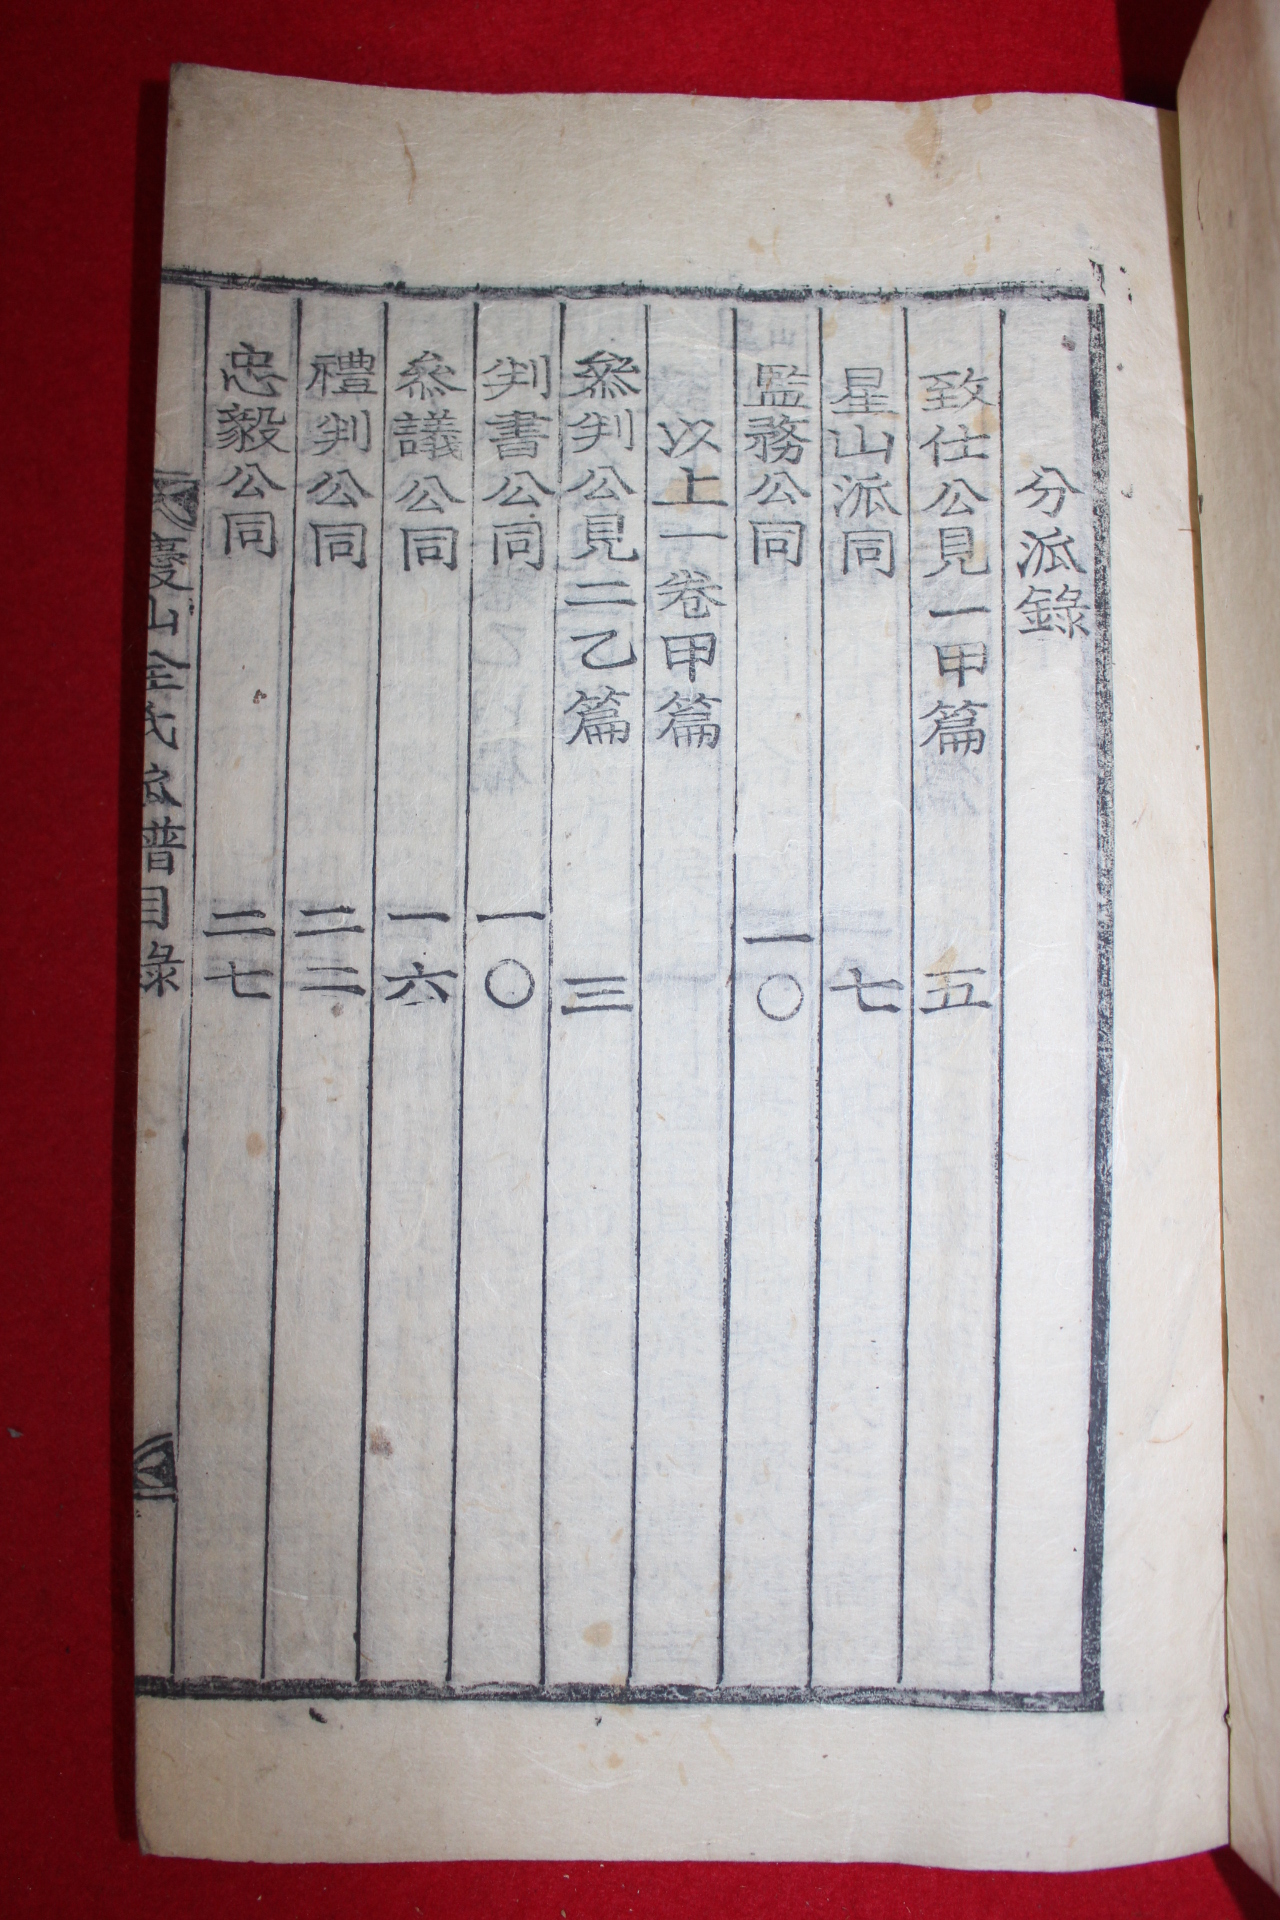 分派錄
致仕公見一甲篇 五
星山派同 七
監務公同 一〇
以上一卷甲篇
叅判公見二乙篇 三
判書公同 一〇
叅議公同 一六
禮判公同 二二
忠毅公同 二七
慶山金氏派譜目錄